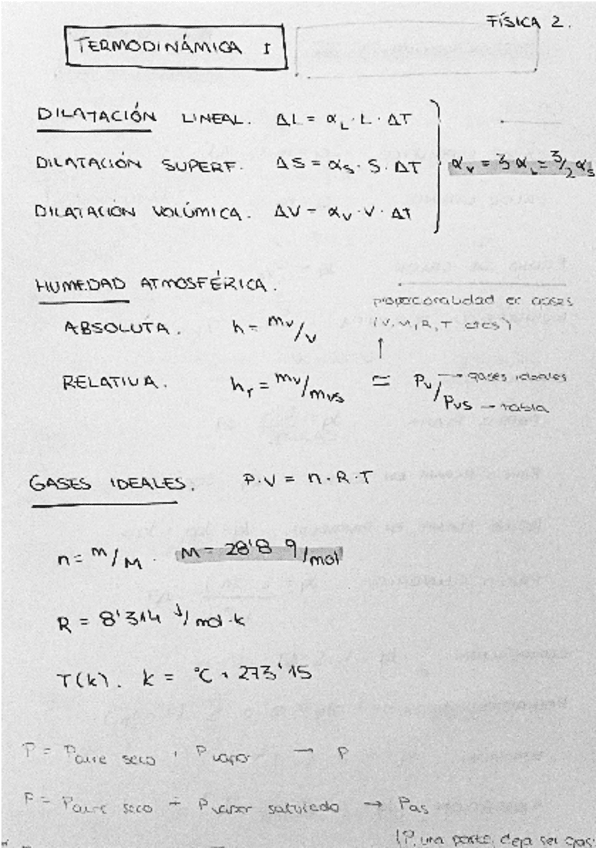 FÍSICA 2.
TERMODINÁMICA I
DILATACIÓN LINEAL. ΔL = α_L · L · ΔT
DILATACIÓN SUPERF. ΔS = α_S · S · ΔT
α_V = 3 α_L = 3/2 α_S
DILATACIÓN VOLÚMICA. ΔV = α_V · V · ΔT
HUMEDAD ATMOSFÉRICA.
proporcionalidad en gases
ABSOLUTA. h = m_V/V
(V, M, R, T ctes)
RELATIVA. h_r = m_V/m_VS ≃ P_V/P_VS
→ gases ideales
→ tabla
GASES IDEALES. P·V = n·R·T
n = m/M. M = 28'8 g/mol
R = 8'314 J/mol·K
T(K). K = °C + 273'15
P = P aire seco + P vapor → P
P = P aire seco + P vapor saturado → Pas
(P, una parte deja ser gas